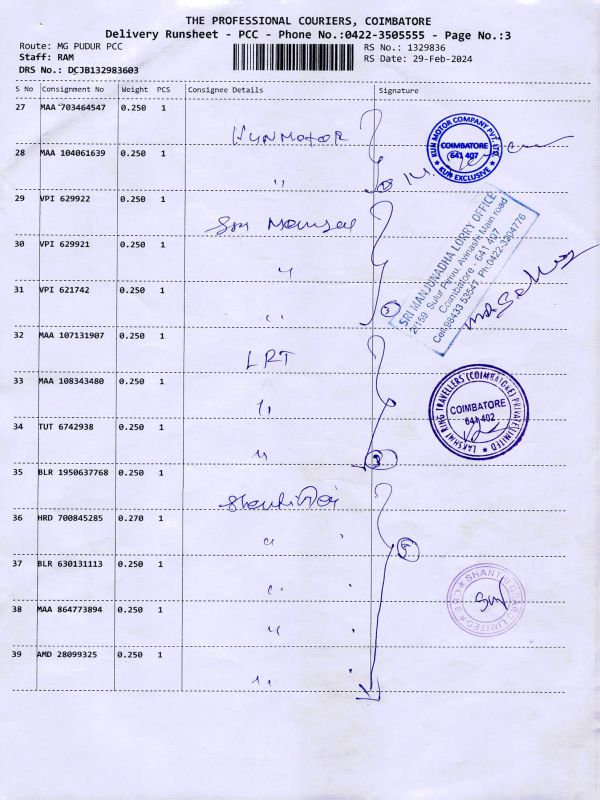 THE PROFESSIONAL COURIERS, COIMBATORE
Delivery Runsheet - PCC - Phone No.:0422-3505555 - Page No.:3
Route: MG PUDUR PCC
RS No.: 1329836
Staff: RAM
RS Date: 29-Feb-2024
DRS No.: DCJB132983603
S No Consignment No Weight PCS Consignee Details Signature
27 MAA 703464547 0.250 1
KUN MOTOR
28 MAA 104061639 0.250 1
"
KUN MOTOR COMPANY PVT. LTD.
COIMBATORE
641 407
★ KUN EXCLUSIVE ★
29 VPI 629922 0.250 1
Sri
30 VPI 629921 0.250 1
"
31 VPI 621742 0.250 1
"
3
SRI MANJUNADHA LORRY OFFICE
2/159, Sulur Pirivu, Avinashi Main road
Coimbatore - 641 407
Cell:98433 53547, Ph:0422-3204776
32 MAA 107131907 0.250 1
LRT
33 MAA 108343480 0.250 1
"
34 TUT 6742938 0.250 1
"
3
LAKSHMI RING TRAVELLERS (COIMBATORE) PRIVATE LIMITED ★
COIMBATORE
641 402
35 BLR 1950637768 0.250 1
36 HRD 700845285 0.270 1
"
5
37 BLR 630131113 0.250 1
"
38 MAA 864773894 0.250 1
"
39 AMD 28099325 0.250 1
"